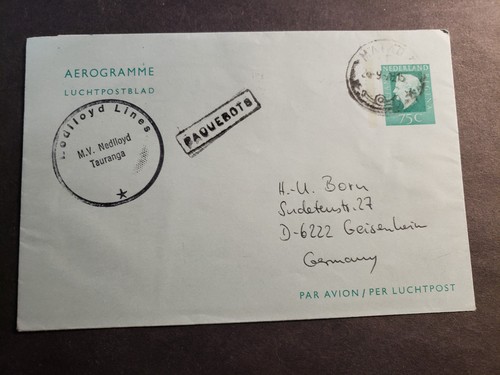 AEROGRAMME
LUCHTPOSTBLAD
Nedlloyd Lines
M.V. Nedlloyd
Tauranga
PAQUEBOTS
NEDERLAND
75C
H.-U. Born
Sudetenstr. 27
D-6222 Geisenheim
Germany
PAR AVION/PER LUCHTPOST